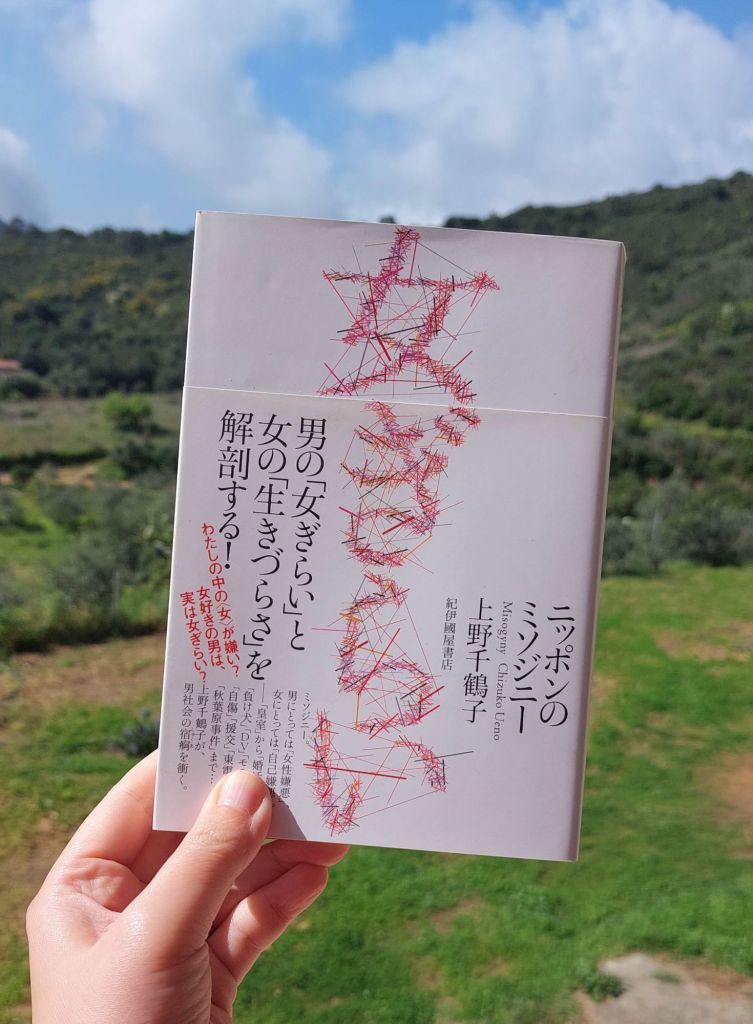 女ぎらい
ニッポンの
ミソジニー
Misogyny Chizuko Ueno
上野千鶴子
紀伊國屋書店
男の「女ぎらい」と
女の「生きづらさ」を
解剖する!
わたしの中の〈女〉が嫌い?
女好きの男は、
実は女ぎらい?
ミソジニー。
男にとっては「女性嫌悪」、
女にとっては「自己嫌悪」。
——「皇室」から「婚
「負け犬」「DV」「モ
「自傷」「援交」「東電
「秋葉原事件」まで…
上野千鶴子が、
男社会の宿痾を衝く。